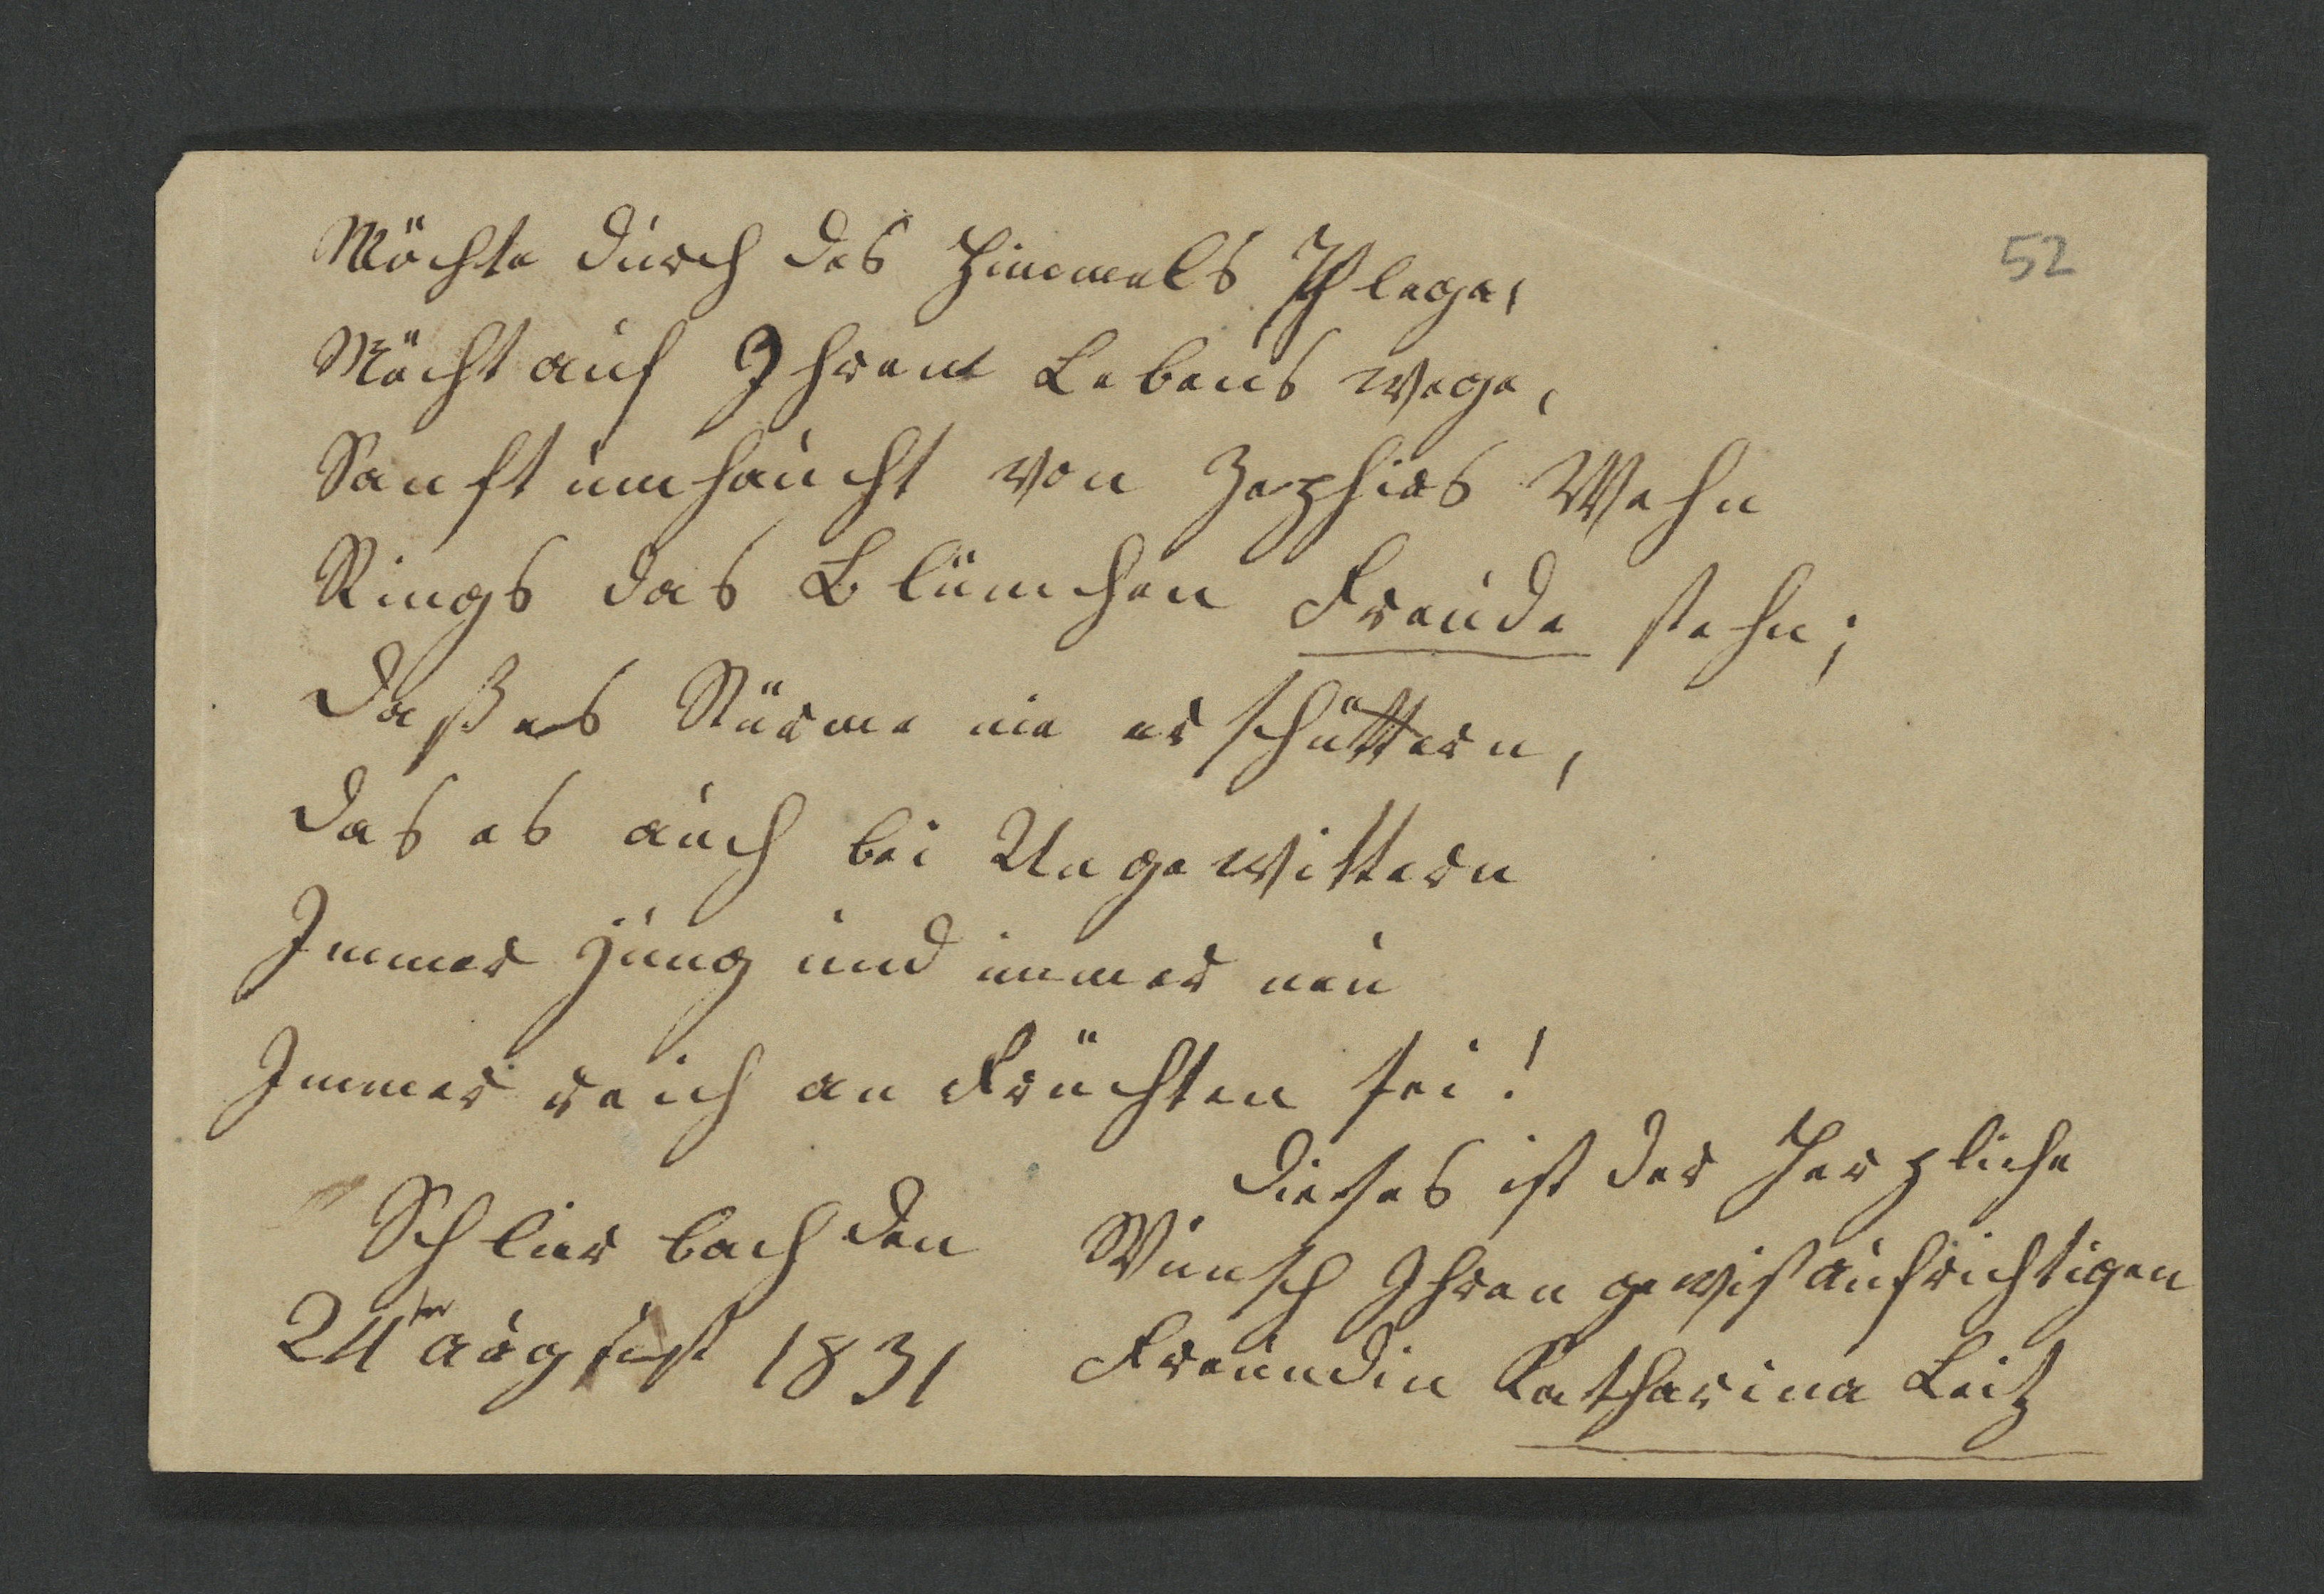 52
Möchte durch des Himmels Pflege,
Möcht auf Ihrem Lebens wege,
Sanft umhaucht von Zephirs Wehn
Rings das Blümchen Freude stehn;
Daß es Stürme nie erschüttern,
das es auch bei Ungewittern
Immer jung und immer neu
Immer reich an Früchten sei!
Dieses ist der Herzliche
Wunsch Ihren gewiß aufrichtigen
Freundin Katharina Leitz
Schlierbach den
24ten august 1831